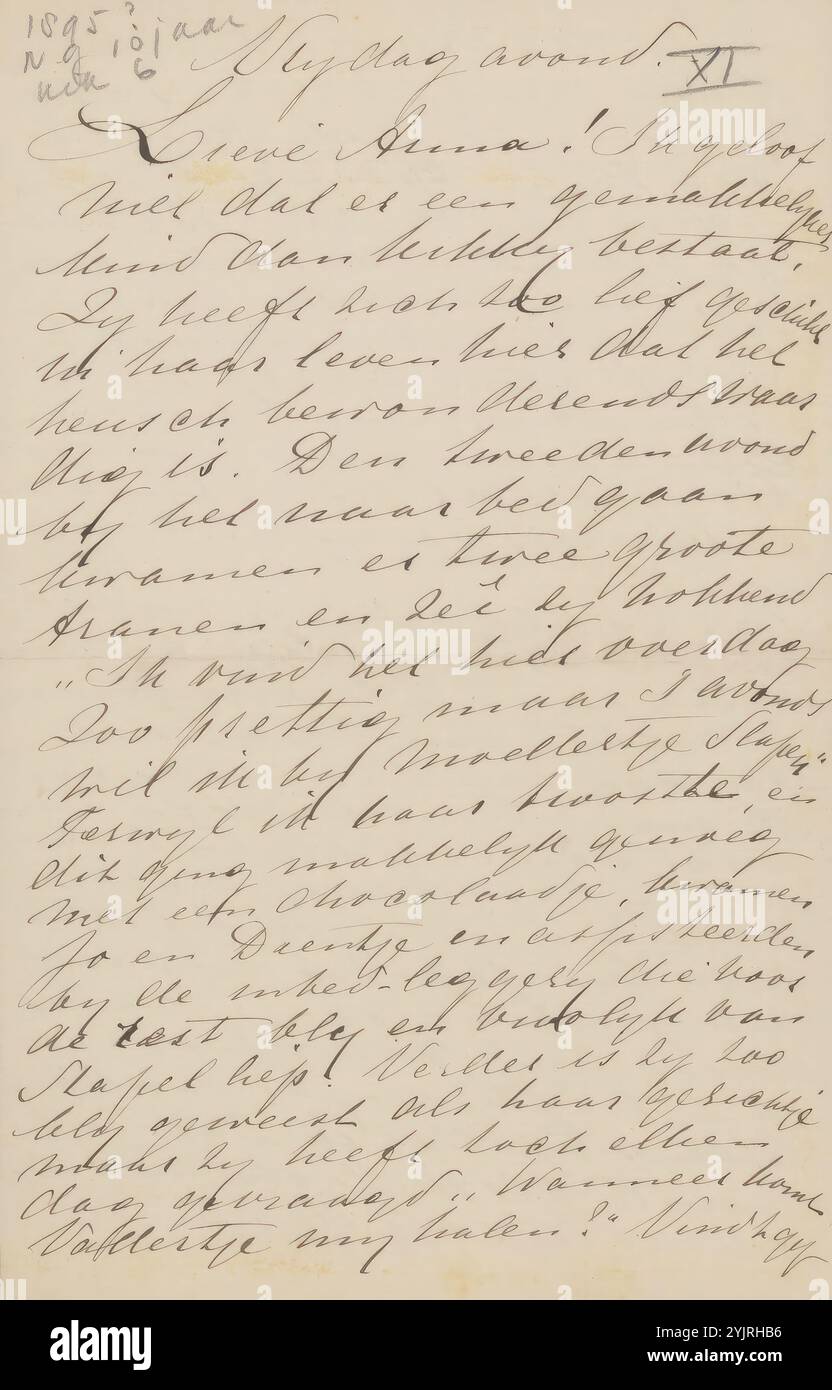 1895?
N g 10 jaar
XI
Vrydag avond.
Lieve Anna! Ik geloof
niet dat er een gemakkelyker
kind dan Kikky bestaat,
Zy heeft zich zoo lief geschikt
in haar leven hier dat het
heusch bewonderendswaar
dig is. Den tweeden avond
by het naar bed gaan
kwamen er twee groote
tranen en zei zy hokkend
„Ik vind het hier overdag
Zoo prettig maar 's avonds
wil ik by Moedertje slapen"
Terwyl ik haar troostte, en
dit ging makkelyk genoeg
met een chocolaadje, kwamen
Jo en Daentje en assisteerden
by de inbed-leggery die voor
de rest bly en vroolyk van
Stapel liep. Verder is zy zoo
bly geweest als haar gezichtje
maar zy heeft toch elken
dag gevraagd „Wanneer komt
Vadertje my halen?" Vindt gy
alamy
Image ID: 2YJRHB6
www.alamy.com